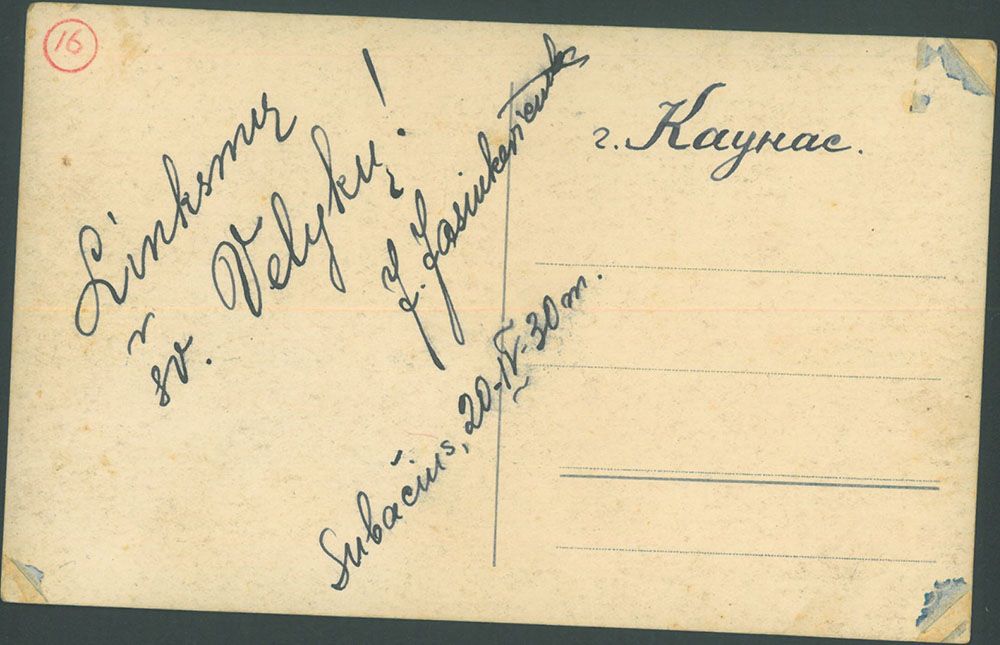 16
Linksmų
šv. Velykų!
J. Jasiukevičienė
Subačius, 20-IV-30 m.
г. Каунас.